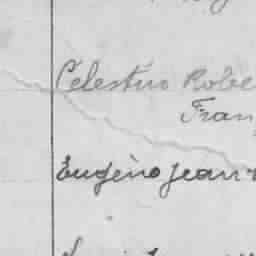 Celestin Robe
Fran
Eugène Jean